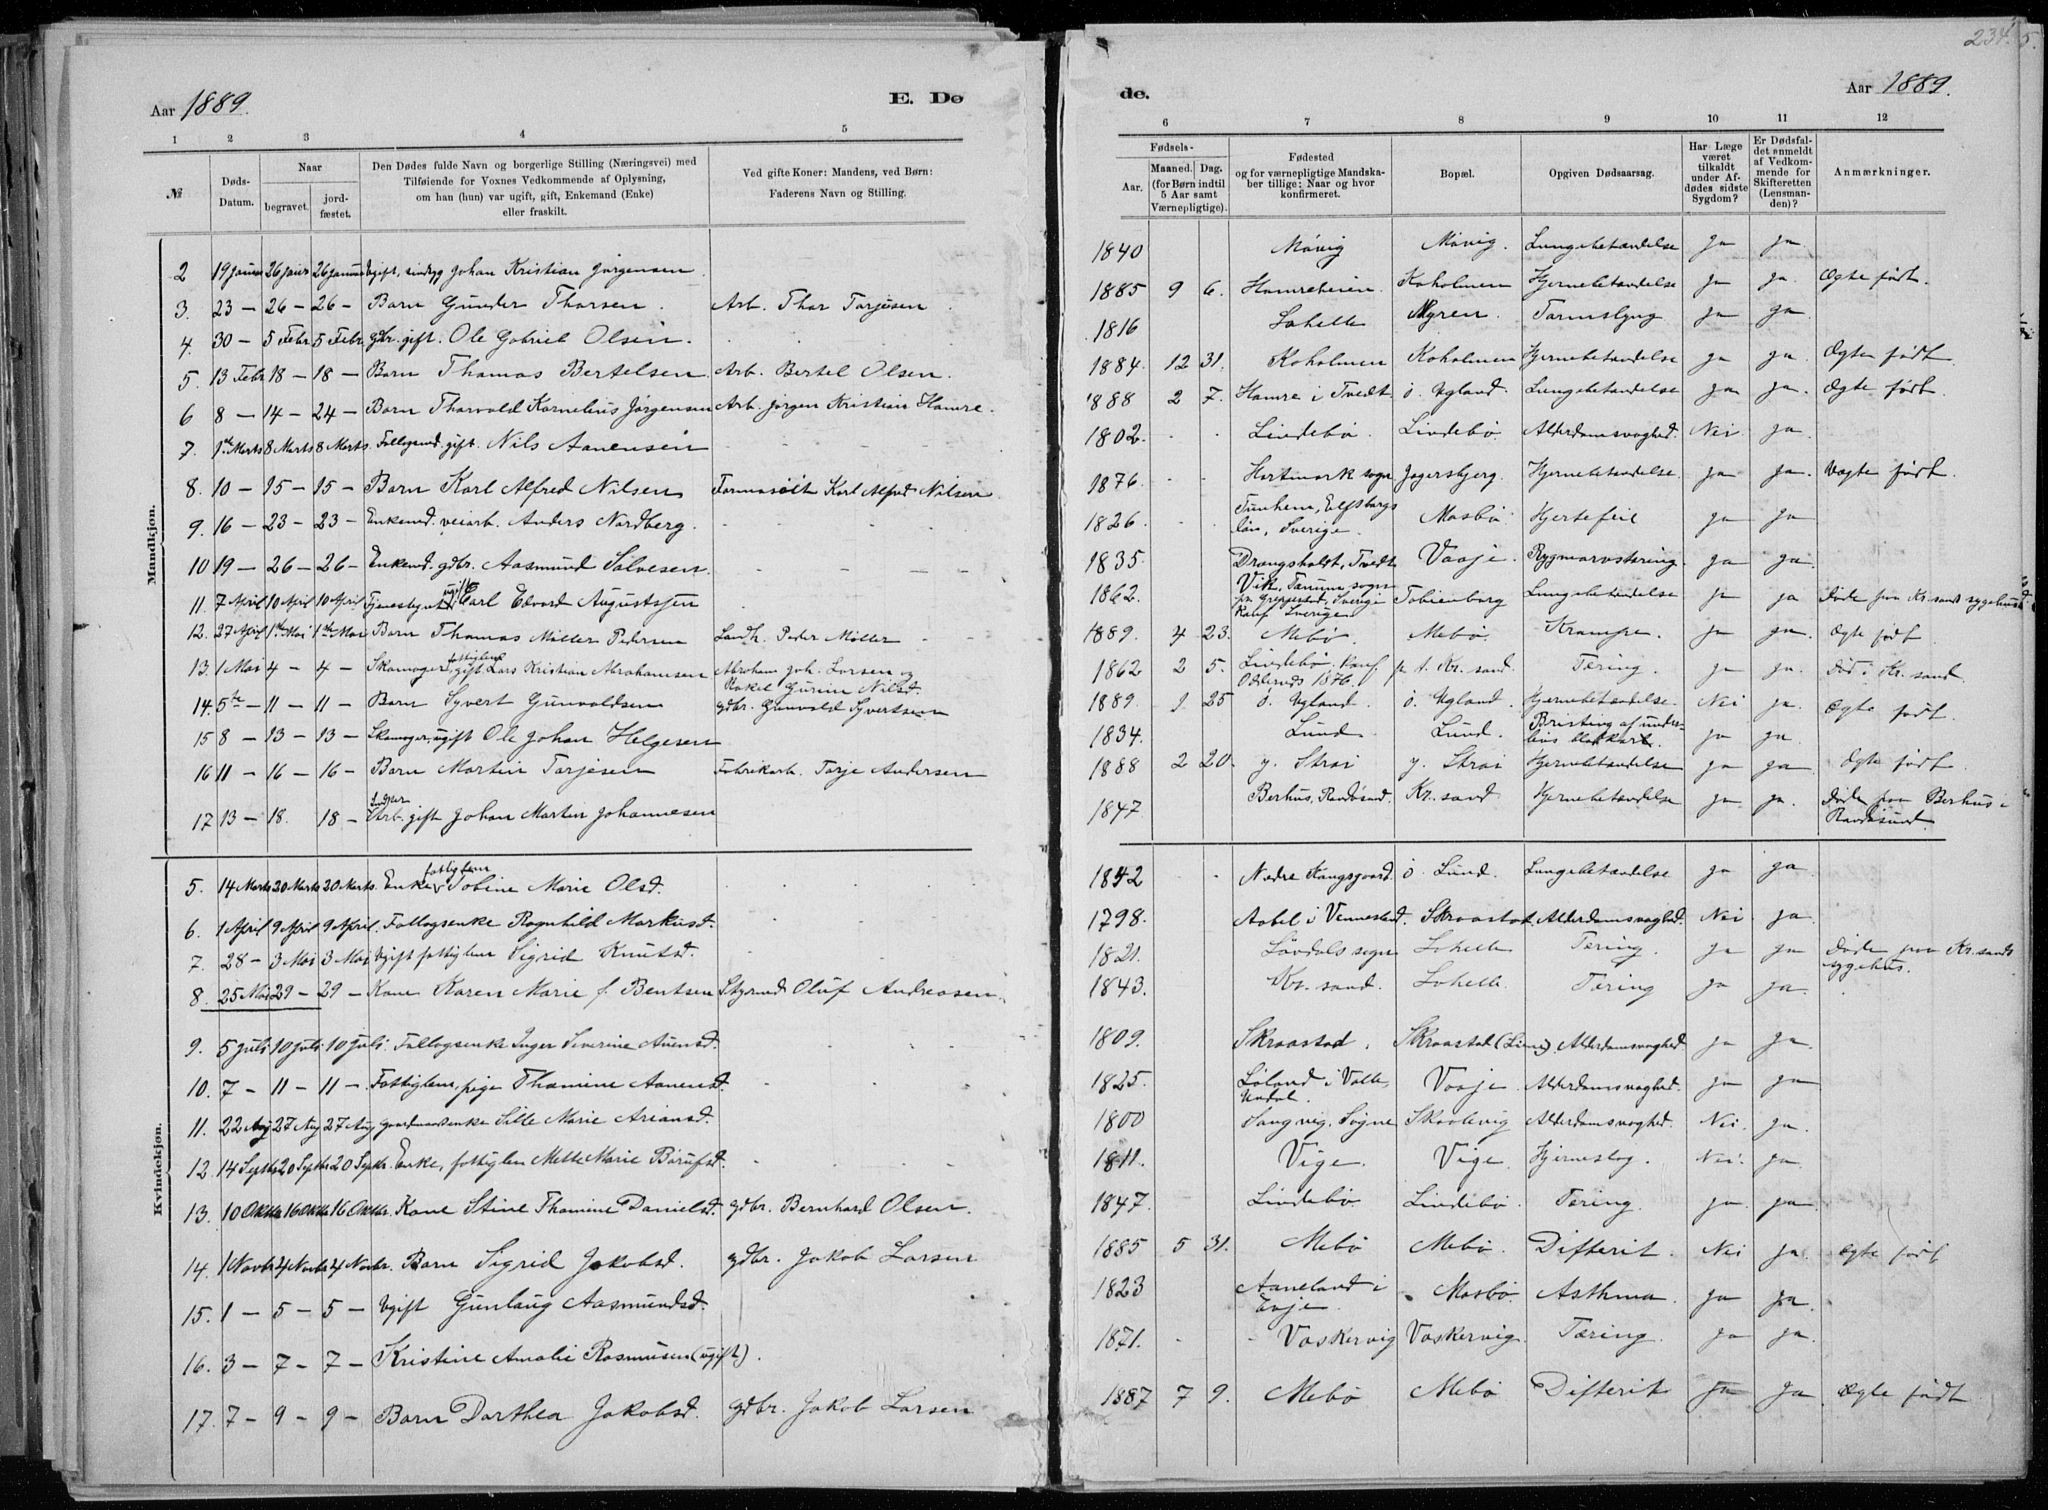 234. 5.
Aar 1889. E. Dø
de. Aar 1889.
1 2 3 4 5
6 7 8 9 10 11 12
№ Døds-Datum. Naar begravet. jordfæstet. Den Dødes fulde Navn og borgerlige Stilling (Næringsvei) med Tilføiende for Voxnes Vedkommende af Oplysning, om han (hun) var ugift, gift, Enkemand (Enke) eller fraskilt. Ved gifte Koner: Mandens, ved Børn: Faderens Navn og Stilling.
Fødsels- Aar. Maaned. Dag. (for Børn indtil 5 Aar samt Værnepligtige). Fødested og for værnepligtige Mandskaber tillige: Naar og hvor konfirmeret. Bopæl. Opgiven Dødsaarsag. Har Læge været tilkaldt under Afdødes sidste Sygdom? Er Dødsfaldet anmeldt af Vedkommende for Skifteretten (Lensmanden)? Anmærkninger.
Mandkjøn.
2 19 Januar 26 Januar 26 Januar Ugift, sindsyg Johan Kristian Jörgensen 1840 Mövig Mövig. Lungebetændelse ja ja
3. 23 – 26 – 26 – Barn Gunder Thorsen. Arb. Thor Torjesen 1885 9 6. Hamreheien. Koholmen Hjernebetændelse ja ja. Ægte født.
4. 30 – 5 Febr 5 Febr gdbr. gift. Ole Gabriel Olsen. 1816 Lohelle Myren. Tarmslyng ja ja
5. 13 Febr 18 – 18 – Barn Thomas Bertelsen Arb. Bertel Olsen. 1884. 12 31. Koholmen Koholmen Hjernebetændelse ja ja. Ægte født
6 8 – 14 – 24 – Barn Thorvald Kornelius Jörgensen Arb. Jörgen Kristian Hamre. 1888 2 7. Hamre i Tvedt. ö. Ugland. Lungebetændelse ja ja. Ægte født.
7. 1ste Marts 8 Marts 8 Marts. Follogsmd. gift. Nils Aanensen 1802. Lindebö. Lindebö. Alderdomsvaghed. Nei ja.
8. 10 – 15 – 15 – Barn Karl Alfred Nilsen Karl Alfred Nilsen 1876. Hartmark sogn Jegersbjerg. Hjernebetændelse. ja ja. Uægte født.
9. 16 – 23 – 23 – Enkemd. veiarb. Anders Nordberg. 1826 Tunhem, Elfsborgs län, Sverige. Mosbö Hjertefeil ja ja
10 19 – 26 – 26 – Enkemd. gdbr. Aasmund Salvesen. 1835. Drangsholdt, Tvedt Vaaje. Rygmarvstæring. ja ja.
11. 7 April 10 April 10 April Tjenestegut ugift Carl Edvard Augustsen 1862. Vik, Tanum sogn pr. Greppestad, Sverige Konf. Sverige Tobienborg Lungebetændelse ja ja Döde paa Kr.sands sygehus
12. 27 April 1ste Mai 1ste Mai Barn Thomas Möller Pedersen Landh. Peder Möller 1889. 4 23. Mebö. Mebö. Krampe. ja ja. Ægte født
13. 1 Mai 4 – 4 – Skomager, fattiglem, gift Lars Kristian Abrahamsen Abraham Joh. Larsen og Rakel Gurine Nilsd. 1862 2 5. Lindebö. Konf. Oddernes 1876. p. t. Kr. sand. Tæring. ja ja. Död i Kr. sand.
14. 5te – 11 – 11 – Barn Syvert Gunvaldsen gdbr. Gunvald Syvertsen 1889. 9 25 ö. Ugland. ö. Ugland. Hjernebetændelse. Nei ja. Ægte født.
15 8 – 13 – 13 – Skomager, ugift Ole Johan Helgesen 1834. Lund. Lund. Bristing af ja ja.
16 11 – 16 – 16 – Barn Martin Torjesen Fabrikarb. Torje Andersen 1888 2 20. y. Strai y. Strai Hjernebetændelse ja ja Ægte født.
17 13 – 18. 18 – Arb. gift Johan Martin Johannesen 1847. Berhus, Randösund. Kr. sand Hjernebetændelse ja ja. Döde paa Berhus i Randösund.
Kvindekjøn.
5. 14 Marts 20 Marts 20 Marts. Enke, fattiglem Tobine Marie Olsd. 1842 Nedre Kongsgaard. ö. Lund. Lungebetændelse ja ja
6. 1 April 9 April 9 April. Follogsenke Ragnhild Markusd. 1798. Aabel i Vennesland. Skraastad. Alderdomsvaghed. Nei ja
7. 28 – 3 Mai 3 Mai Ugift fattiglem Sigrid Knutsd. 1821. Lövdals sogn Lohelle Tæring. ja ja Döde paa Kr. sands sygehus.
8. 25 Mai 29 – 29 – Kone Karen Marie f. Bentsen Styrmd Oluf Andreasen. 1843. Kr. sand. Lohelle. Tæring ja ja.
9. 5 Juli 10 Juli 10 Juli. Follogsenke Inger Severine Auensd. 1809. Skraastad. Skraastad (Lien) Alderdomsvaghed ja ja.
10. 7 – 11 – 11 – Fattiglem, pige Thomine Aanensd. 1825. Löland i Valle, Undal. Vaaje. Alderdomsvaghed. ja ja
11. 22 Aug 27 Aug 27 Aug gaardmandsenke Sille Marie Ariansd. 1800 Langvig, Sögne Skaalevig Alderdomsvaghed. Nei. ja.
12 14 Septbr 20 Septbr 20 Septbr. Enke, fattiglem Mette Marie Börufsd. 1811. Vige. Vige. Hjerneslag. Nei. ja.
13. 10 Oktbr 16 Oktbr 16 Oktbr. Kone Stine Thomine Danielsd. gdbr. Bernhard Olsen. 1847. Lindebö Lindebö. Tæring. ja ja
14. 1 Novbr 4 Novbr 4 Novbr. Barn Sigrid Jakobsd. gdbr. Jakob Larsen 1885 5 31. Mebö Mebö. Difterit. Nei ja. Ægte født
15. 1 – 5 – 5 – Ugift Gunlaug Aasmundsd. 1823 Aaneland i Evje. Mosbö. Asthma. ja ja.
16. 3 – 7 – 7 – Kristine Amalie Rasmusen (ugift). 1871. Vaskervig Vaskervig. Tæring. ja ja.
17. 7 – 9 – 9 – Barn Dorthea Jakobsd. gdbr. Jakob Larsen 1887 7 9. Mebö Mebö Difterit ja ja Ægte født